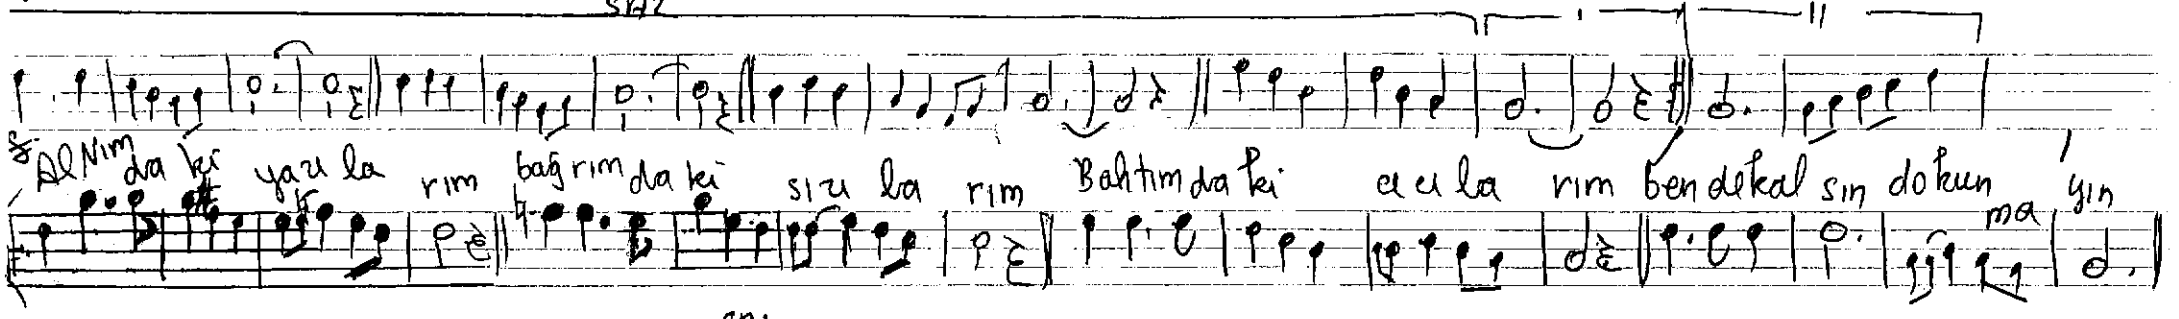 SAZ
I II
Alnım da ki yazı la rım bağ rım da ki sı zı la rım Bahtım da ki acı la rım ben de kal sın do kun ma yın